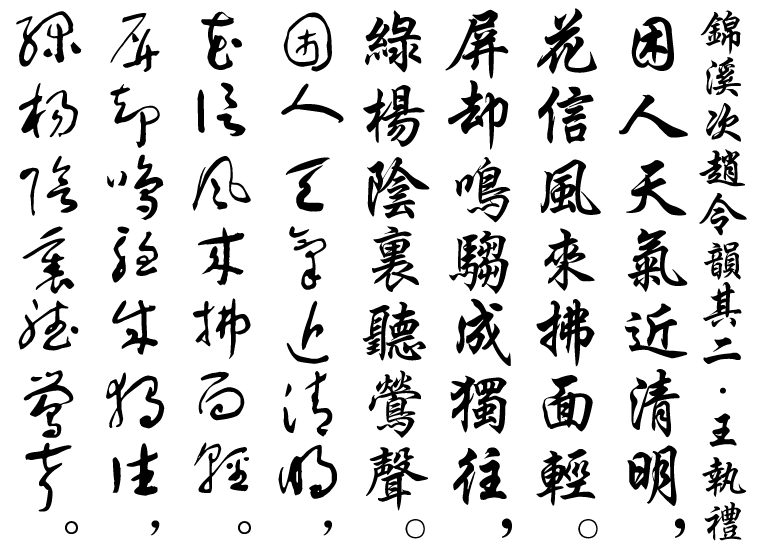 錦溪次趙令韻其二·王執禮
困人天氣近清明，
花信風來拂面輕。
屏却鳴騶成獨往，
綠楊陰裏聽鶯聲。
困人天氣近清明，
花信風來拂面輕。
屏却鳴騶成獨往，
綠楊陰裏聽鶯聲。